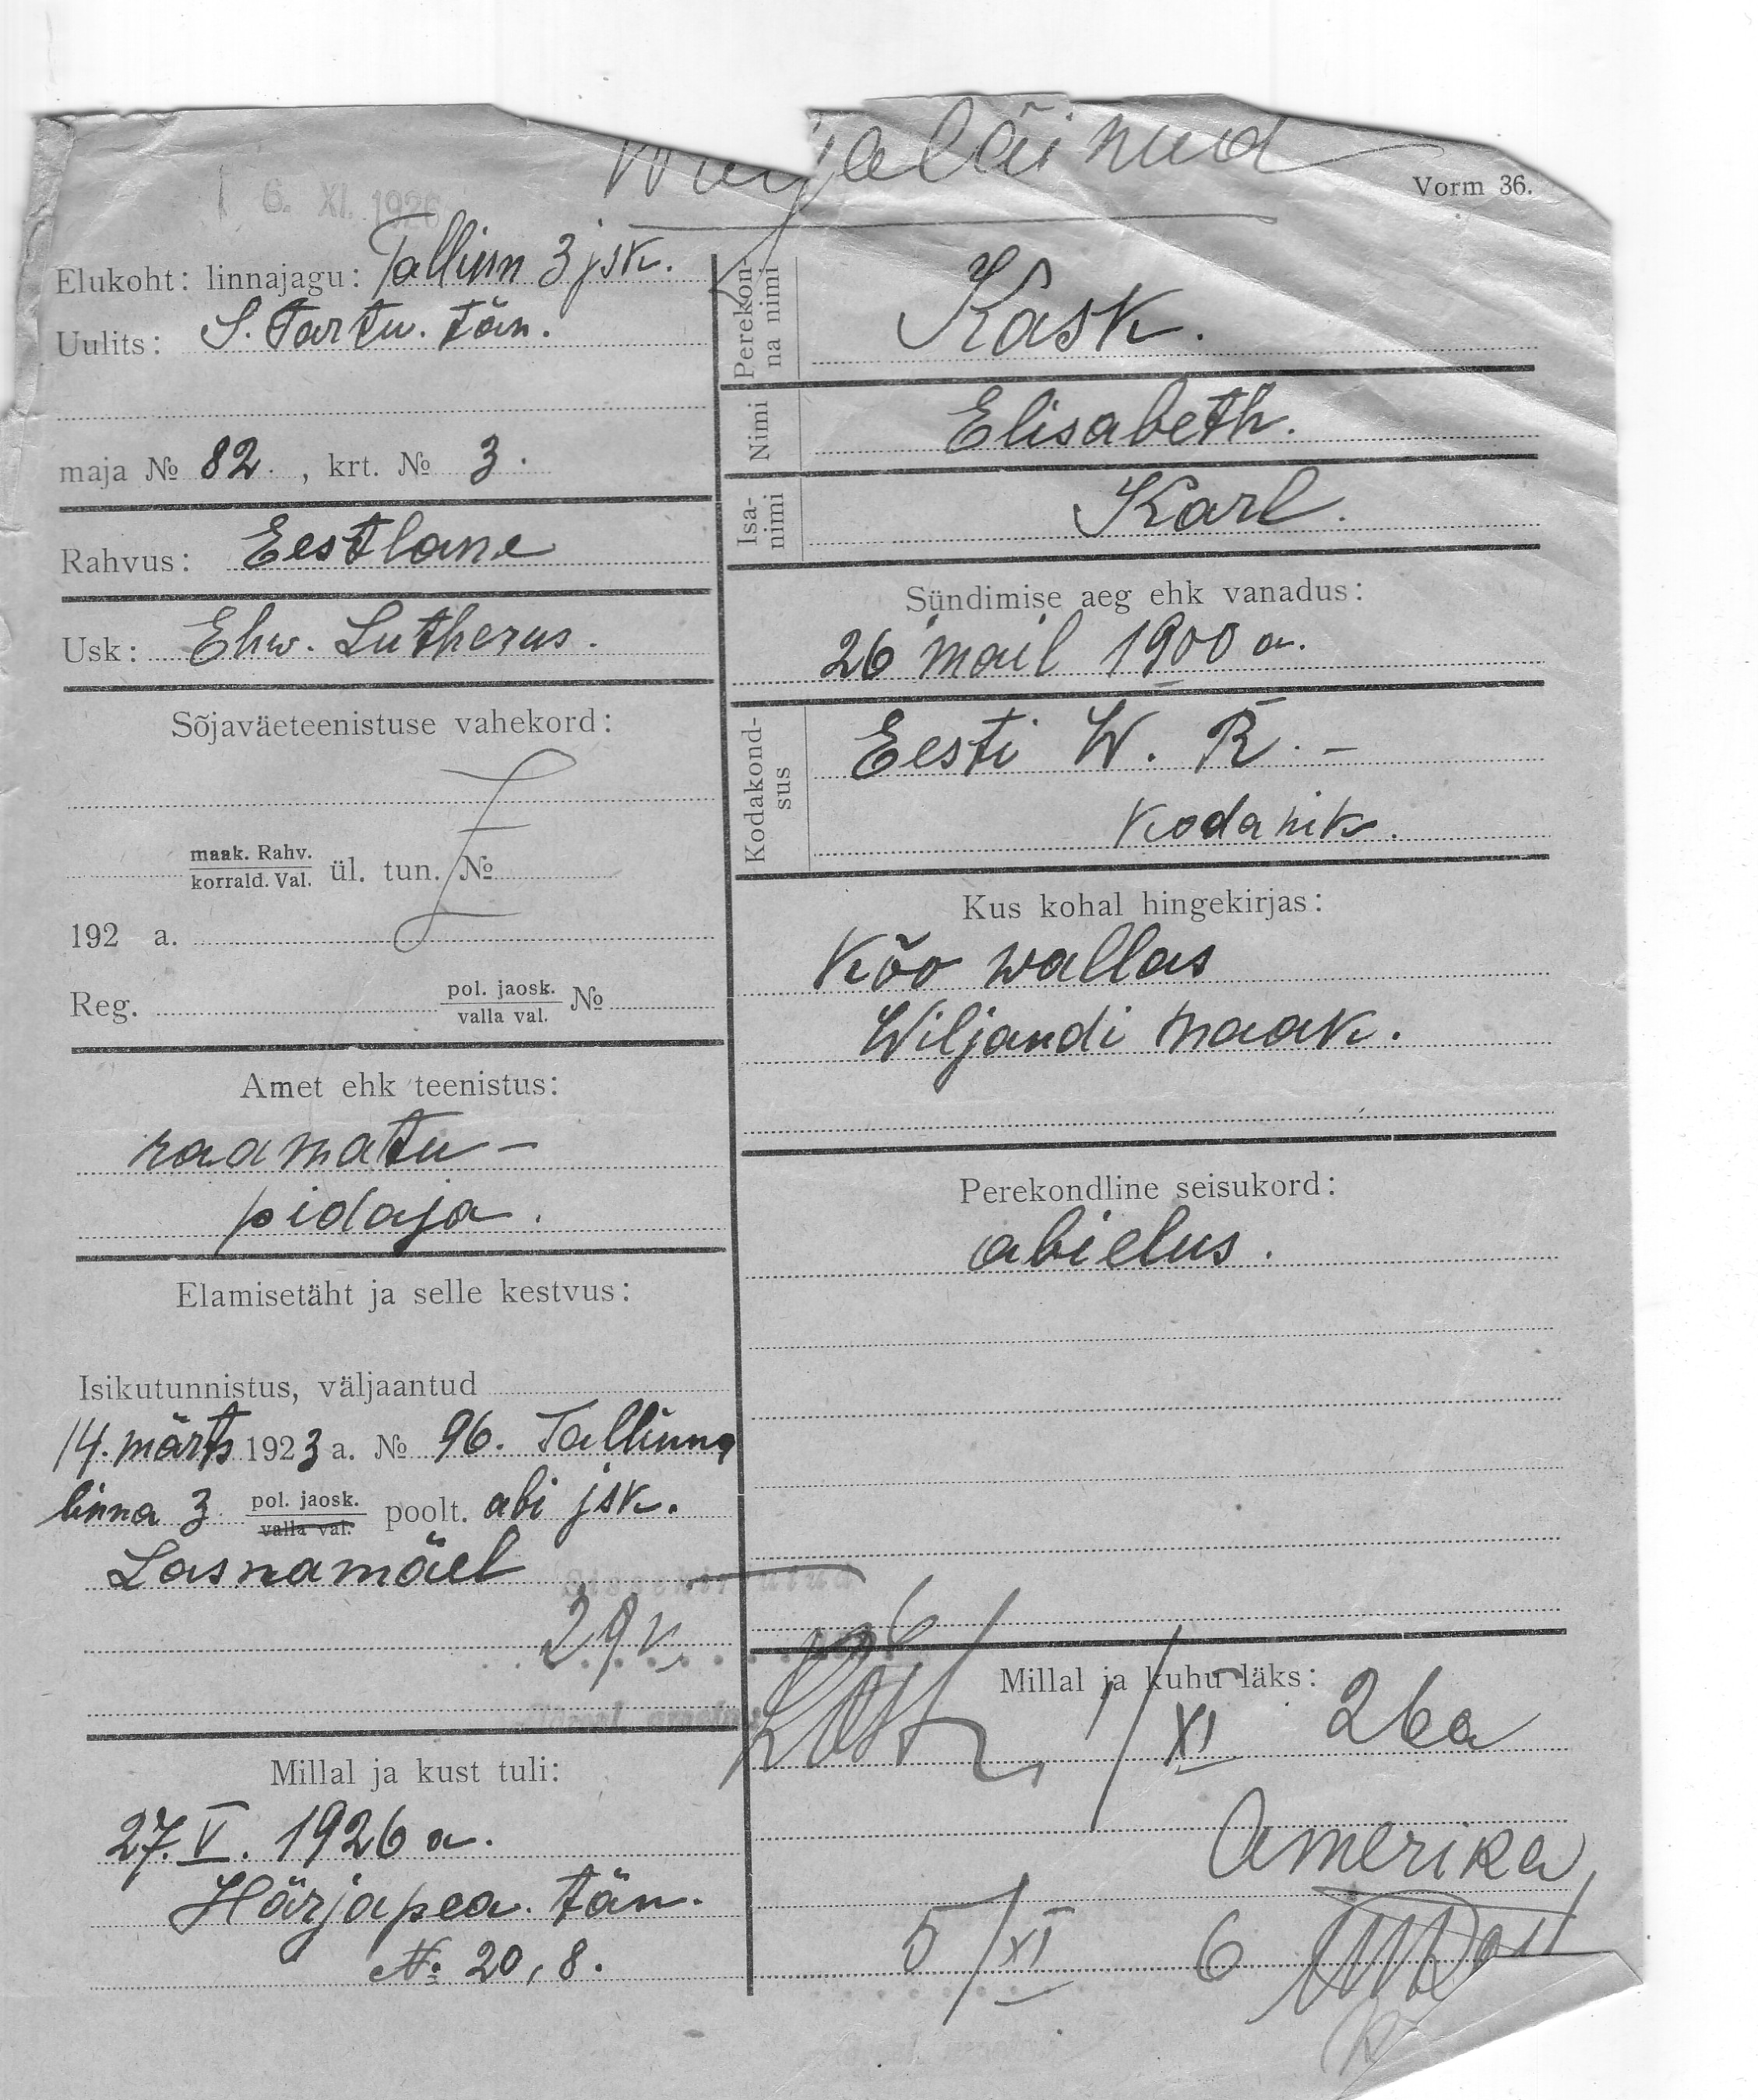 Wäljaläinud
Vorm 36.
6. XI. 1926
Elukoht: linnajagu: Tallinn 3 jsk.
Uulits: S. Tartu. tän.
maja № 82. , krt. № 3.
Rahvus: Eestlane
Usk: Ehw. Lutherus.
Sõjaväeteenistuse vahekord:
maak. Rahv.
korrald. Val. ül. tun. №
192 a.
Reg. pol. jaosk. №
valla val.
Amet ehk teenistus:
raamatu-
pidaja.
Elamisetäht ja selle kestvus:
Isikutunnistus, väljaantud
14. märts 1923 a. № 96. Tallinna
linna 3 pol. jaosk. poolt. abi jsk.
valla val.
Lasnamäel
29 V
Millal ja kust tuli:
27. V. 1926 a.
Härjapea. tän.
№ 20, 8.
Perekon-
na nimi
Kask.
Nimi
Elisabeth.
Isa-
nimi
Karl.
Sündimise aeg ehk vanadus:
26 mail 1900 a.
Kodakond-
sus
Eesti W. R. -
kodanik.
Kus kohal hingekirjas:
Kõo wallas
Wiljandi maak.
Perekondline seisukord:
abielus.
Millal ja kuhu läks:
1/XI 26a
Amerika
5/XI 6